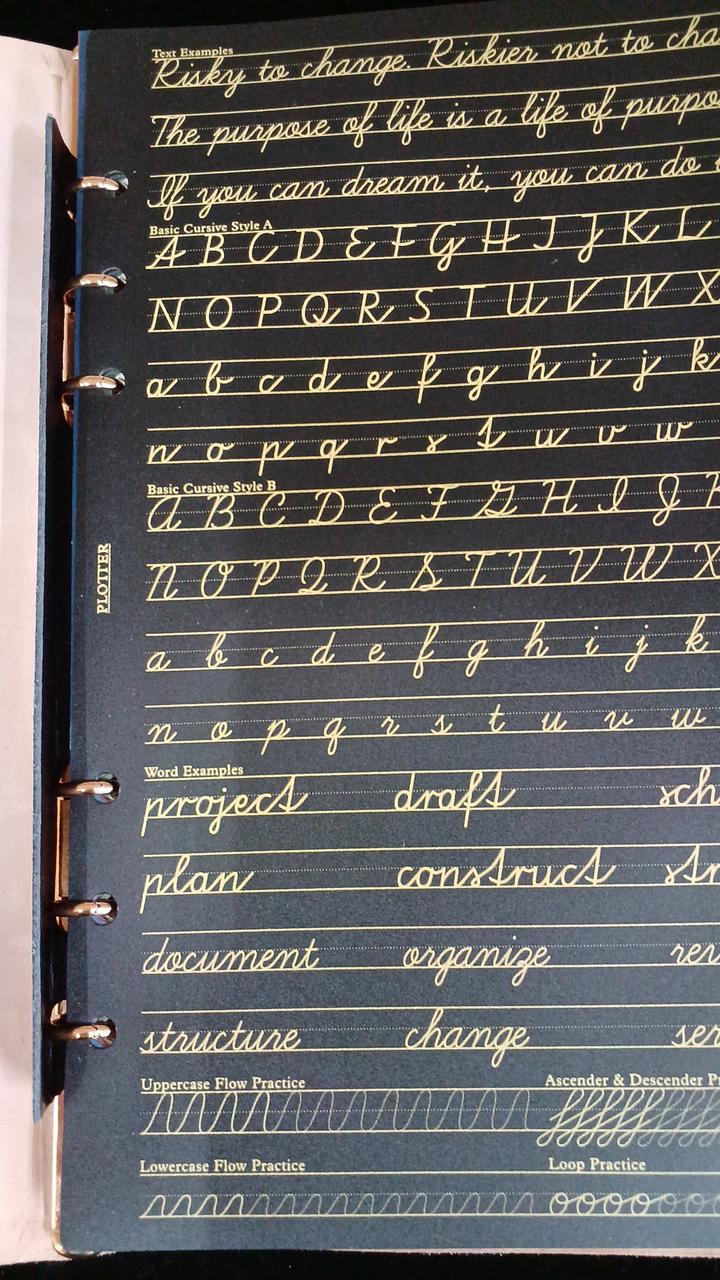 Text Examples
Risky to change. Riskier not to cha
The purpose of life is a life of purpo
If you can dream it, you can do
Basic Cursive Style A
A B C D E F G H I J K L
N O P Q R S T U V W X
a b c d e f g h i j k
n o p q r s t u v w
Basic Cursive Style B
A B C D E F G H I J
N O P Q R S T U V W X
a b c d e f g h i j k
n o p q r s t u v w
PLOTTER
Word Examples
project draft sch
plan construct str
document organize rev
structure change ser
Uppercase Flow Practice
Ascender & Descender Pr
Lowercase Flow Practice
Loop Practice